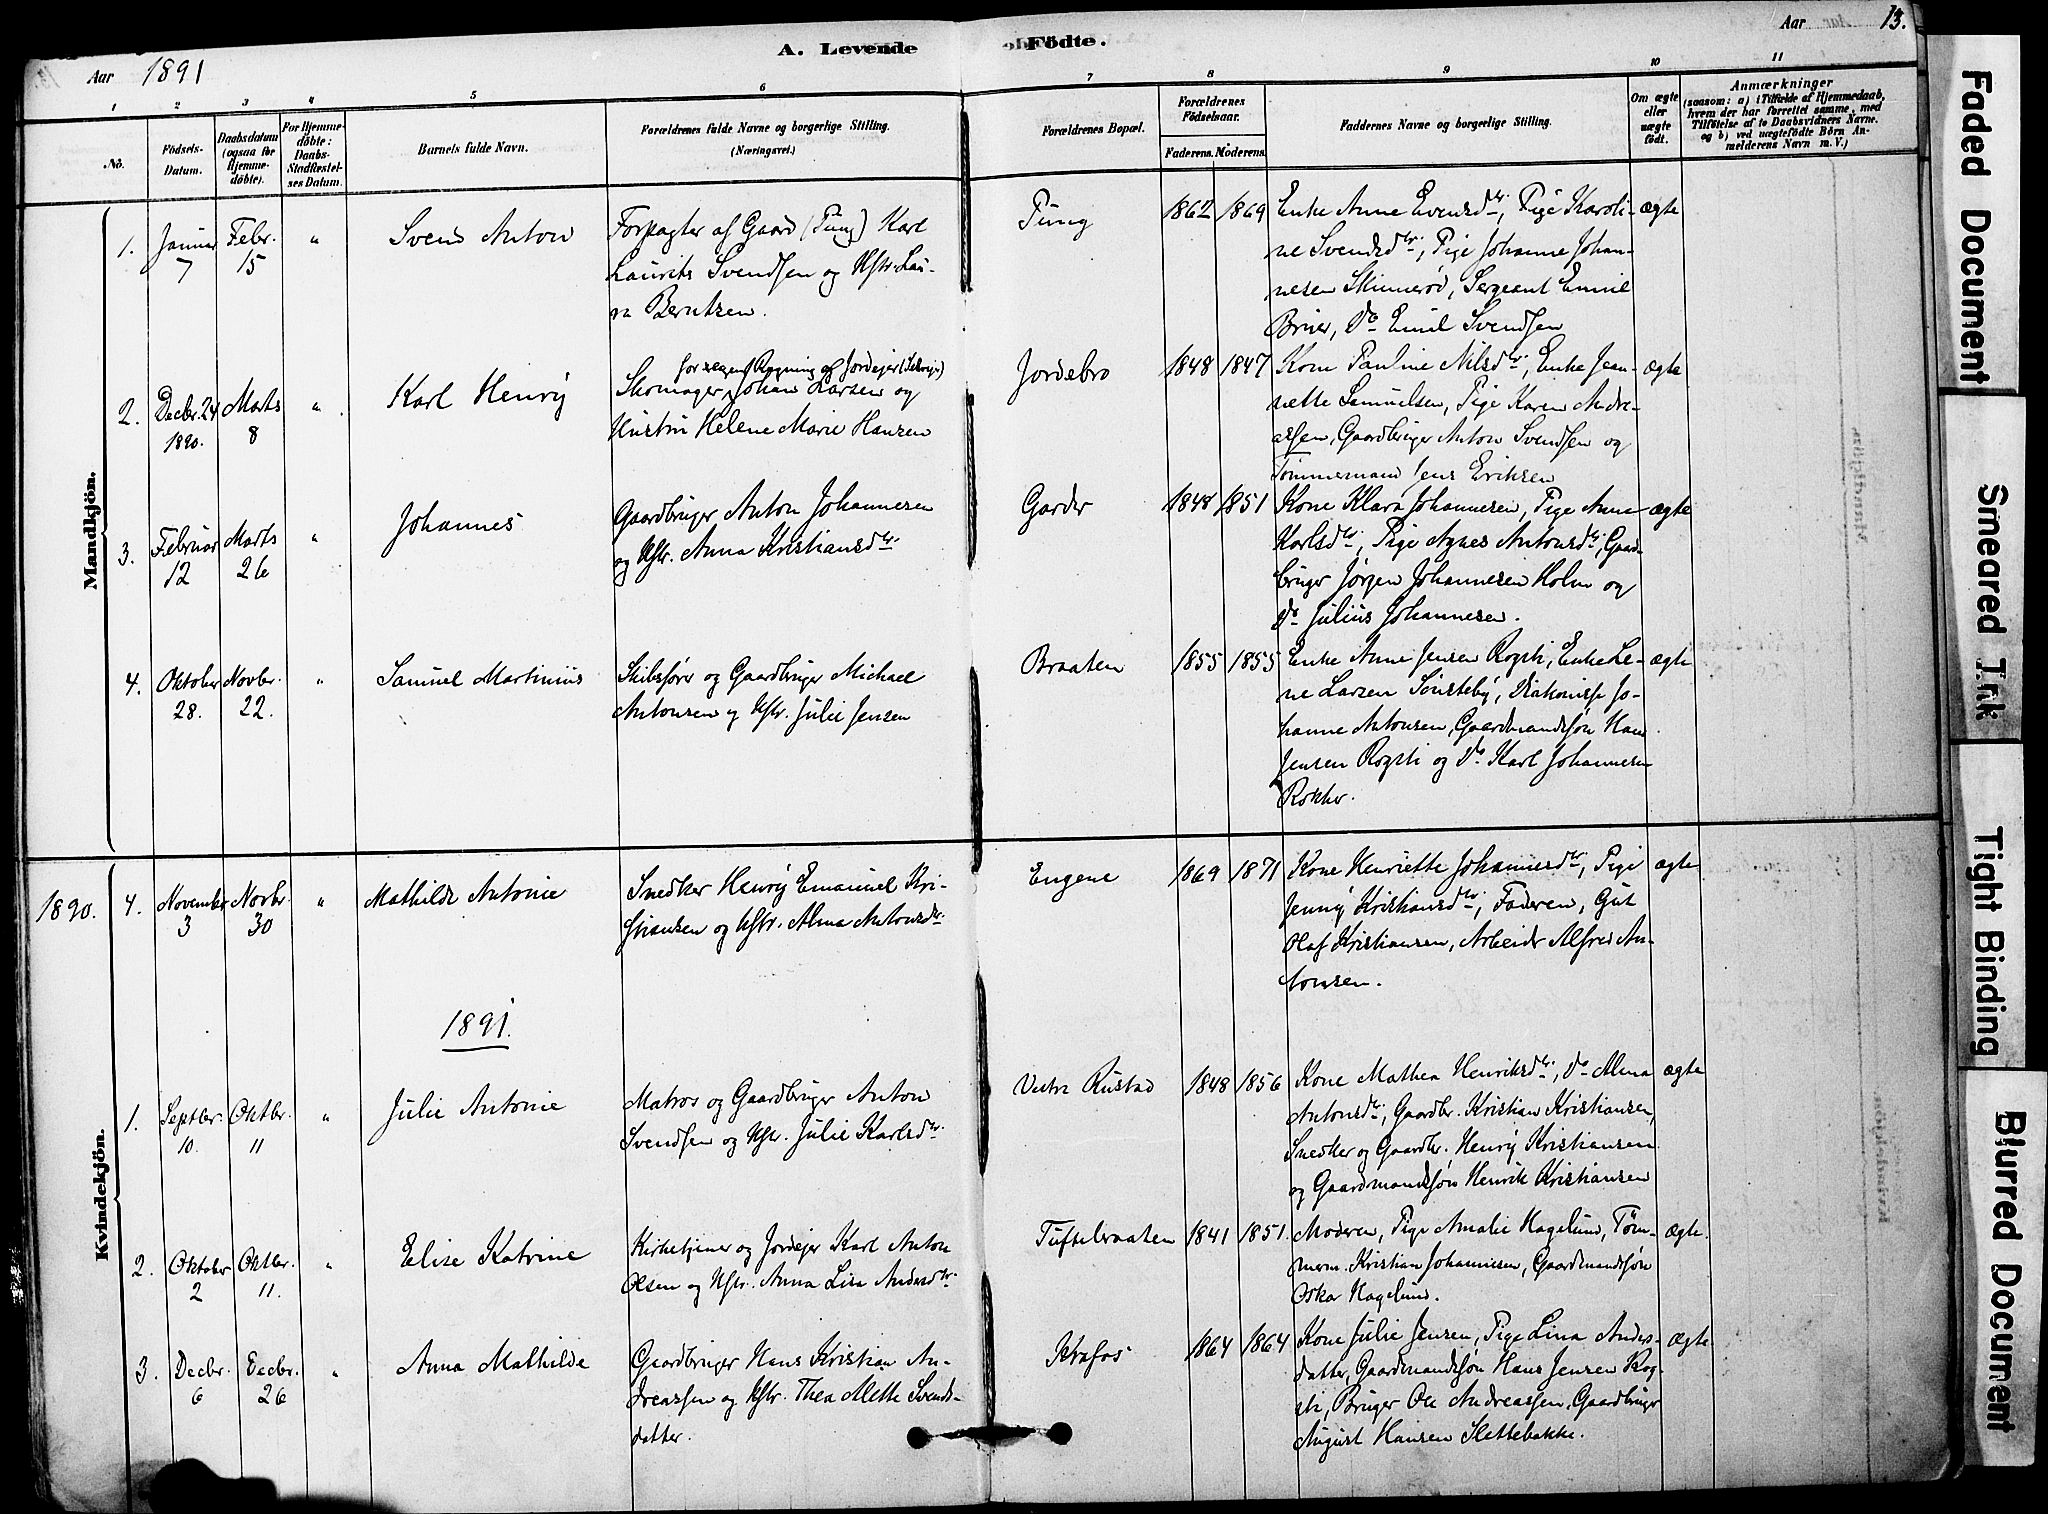 A. Levende Födte.
Aar 1891
Aar 13.
1 2 3 4 5 6 7 8 9 10 11
No.
Födsels-
Datum.
Daabsdatum
(ogsaa for
Hjemme-
döbte).
For Hjemme-
döbte:
Daabs-
Stadfæstel-
ses Datum.
Barnets fulde Navn.
Forældrenes fulde Navne og borgerlige Stilling.
(Næringsvei.)
Forældrenes Bopæl.
Forældrenes
Födselsaar.
Faderens. Moderens.
Faddernes Navne og borgerlige Stilling.
Om ægte
eller
uægte
födt.
Anmærkninger
(saasom: a) i Tilfælde af Hjemmedaab,
hvem der har forrettet samme, med
Tilföielse af to Daabsvidners Navne.
og b) ved uægtefödte Börn An-
melderens Navn m. V.)
Mandkjön.
1.
Januar
7
Febr.
15
"
Svend Anton
Forpagter af Gaard (Pung) Karl
Laurits Svendsen og Hstr. Lau-
ra Berntsen.
Pung
1862 1869
Enke Anne Evensdtr, Pige Karoli-
ne Svendsdtr, Pige Johanne Johan-
nesen Skinnerød, Sergeant Emil
Do Emil Svendsen
ægte
2.
Decbr. 24
1890.
Marts
8
"
Karl Henry
for egen Regning og Jordejer (Selvejer)
Skomager Johan Larsen og
Hustru Helene Marie Hansen
Jordebro
1848 1847
Kone Pauline Nilsdtr, Enke Jean-
nette Samuelsen, Pige Karen Andre-
assen, Gaardbruger Anton Svendsen og
Tømmermand Jens Eriksen
ægte
3.
Februar
12
Marts
26
"
Johannes
Gaardbruger Anton Johannesen
og Hstr. Anna Kristiansdtr.
Garder
1848 1851
Kone Klara Johannesen, Pige Anne
Karlsdtr, Pige Agnes Antonsdtr, Gaard-
bruger Jørgen Johannesen Holm og
Do Julius Johannesen.
ægte
4.
Oktober
28.
Novbr.
22.
"
Samuel Martinius
Skibsfører og Gaardbruger Michael
Antonsen og Hstr. Julie Jensen
Braaten
1855 1855
Enke Anne Jensen Rogsti, Enke Le-
ne Larsen Sønsteby, Diakonisse Jo-
hanne Antonsen, Gaardmandssøn Hans
Jensen Rogsti og Do Karl Johannesen
ægte
Kvindekjön.
1890.
4.
November
3
Novbr.
30
"
Mathilde Antonie
Snedker Henry Emanuel Kri-
stiansen og Hstr. Alma Antonsdtr.
Engene
1869 1871
Kone Henriette Johannesdtr, Pige
Jenny Kristiansdtr, Faderen, Gut
Olaf Kristiansen, Arbeider Alfred An-
tonsen.
ægte
1891.
1.
Septbr.
10.
Oktbr.
11
"
Julie Antonie
Matros og Gaardbruger Anton
Svendsen og Hstr. Julie Karlsdtr.
Vestre Rustad
1848 1856
Kone Mathea Henriksdtr, Do Alma
Antonsdtr, Gaardbr. Kristian Kristiansen,
Snedker og Gaardbr. Henry Kristiansen
og Gaardmandssøn Henrik Kristiansen
ægte
2.
Oktober
2
Oktbr.
11.
"
Elise Katrine
Kirketjener og Jordejer Karl Anton
Olsen og Hstr. Anna Lisa Andersdtr.
Tuftebraaten
1841 1851.
Moderen, Pige Amalie Hagelund, Tøm-
merm. Kristian Johannesen, Gaardmandssøn
Oskar Hagelund.
ægte.
3.
Decbr.
6
Decbr.
26
"
Anna Mathilde
Gaardbruger Hans Kristian An-
dreassen og Hstr. Thea Mette Svends-
datter.
Krafos
1864 1864
Kone Julie Jensen, Pige Lina Anders-
datter, Gaardmandssøn Hans Jensen Rog-
sti, Bruger Ole Andreassen, Gaardbruger
August Hansen Slettebakke.
ægte
Faded Document
Smeared Ink
Tight Binding
Blurred Document